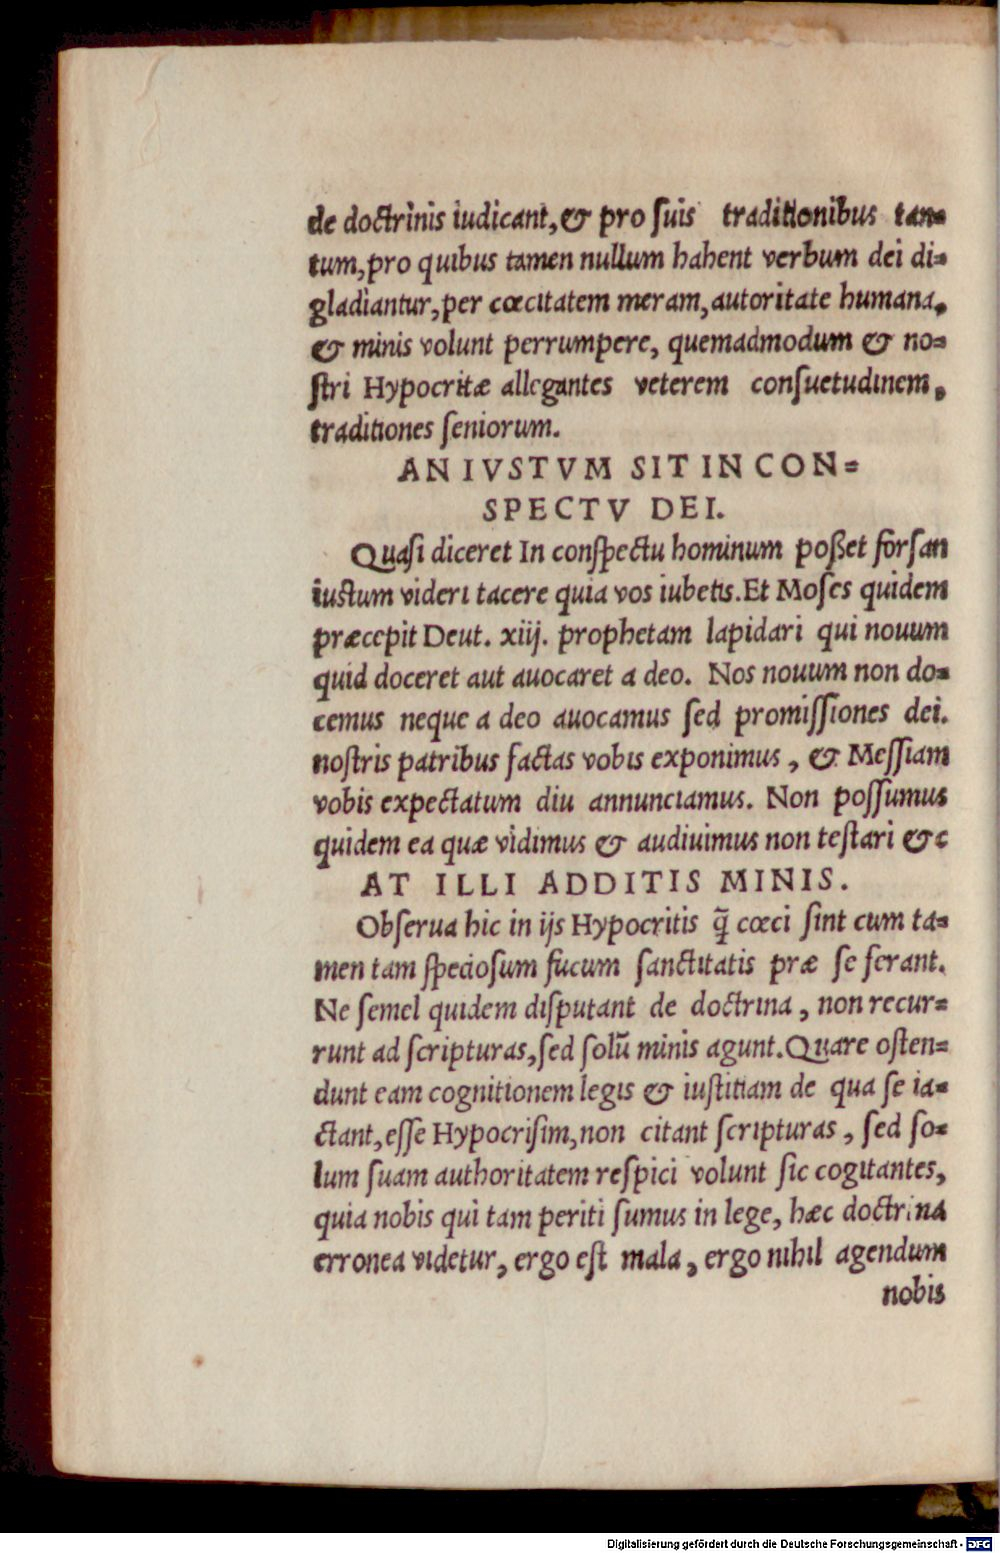 de doctrinis iudicant, & pro ſuis traditionibus tan⸗
tum, pro quibus tamen nullum habent verbum dei di⸗
gladiantur, per cœcitatem meram, autoritate humana,
& minis volunt perrumpere, quemadmodum & no⸗
ſtri Hypocritæ allegantes veterem conſuetudinem,
traditiones ſeniorum.
AN IVSTVM SIT IN CON⸗
SPECTV DEI.
Quaſi diceret In conſpectu hominum poßet forſan
iustum videri tacere quia vos iubetis. Et Moſes quidem
præcepit Deut. xiij. prophetam lapidari qui nouum
quid doceret aut auocaret a deo. Nos nouum non do⸗
cemus neque a deo auocamus ſed promiſſiones dei.
noſtris patribus factas vobis exponimus, & Meſſiam
vobis expectatum diu annunciamus. Non poſſumus
quidem ea quæ vidimus & audiuimus non teſtari &c
AT ILLI ADDITIS MINIS.
Obſerua hic in ijs Hypocritis q̃ cœci ſint cum ta⸗
men tam ſpecioſum fucum ſanctitatis præ ſe ferant.
Ne ſemel quidem diſputant de doctrina, non recur⸗
runt ad ſcripturas, ſed ſolũ minis agunt. Quare oſten⸗
dunt eam cognitionem legis & iuſtitiam de qua ſe ia⸗
ctant, eſſe Hypocriſim, non citant ſcripturas, ſed ſo⸗
lum ſuam authoritatem reſpici volunt ſic cogitantes,
quia nobis qui tam periti ſumus in lege, hæc doctrina
erronea videtur, ergo eſt mala, ergo nihil agendum
nobis
Digitalisierung gefördert durch die Deutsche Forschungsgemeinschaft - DFG